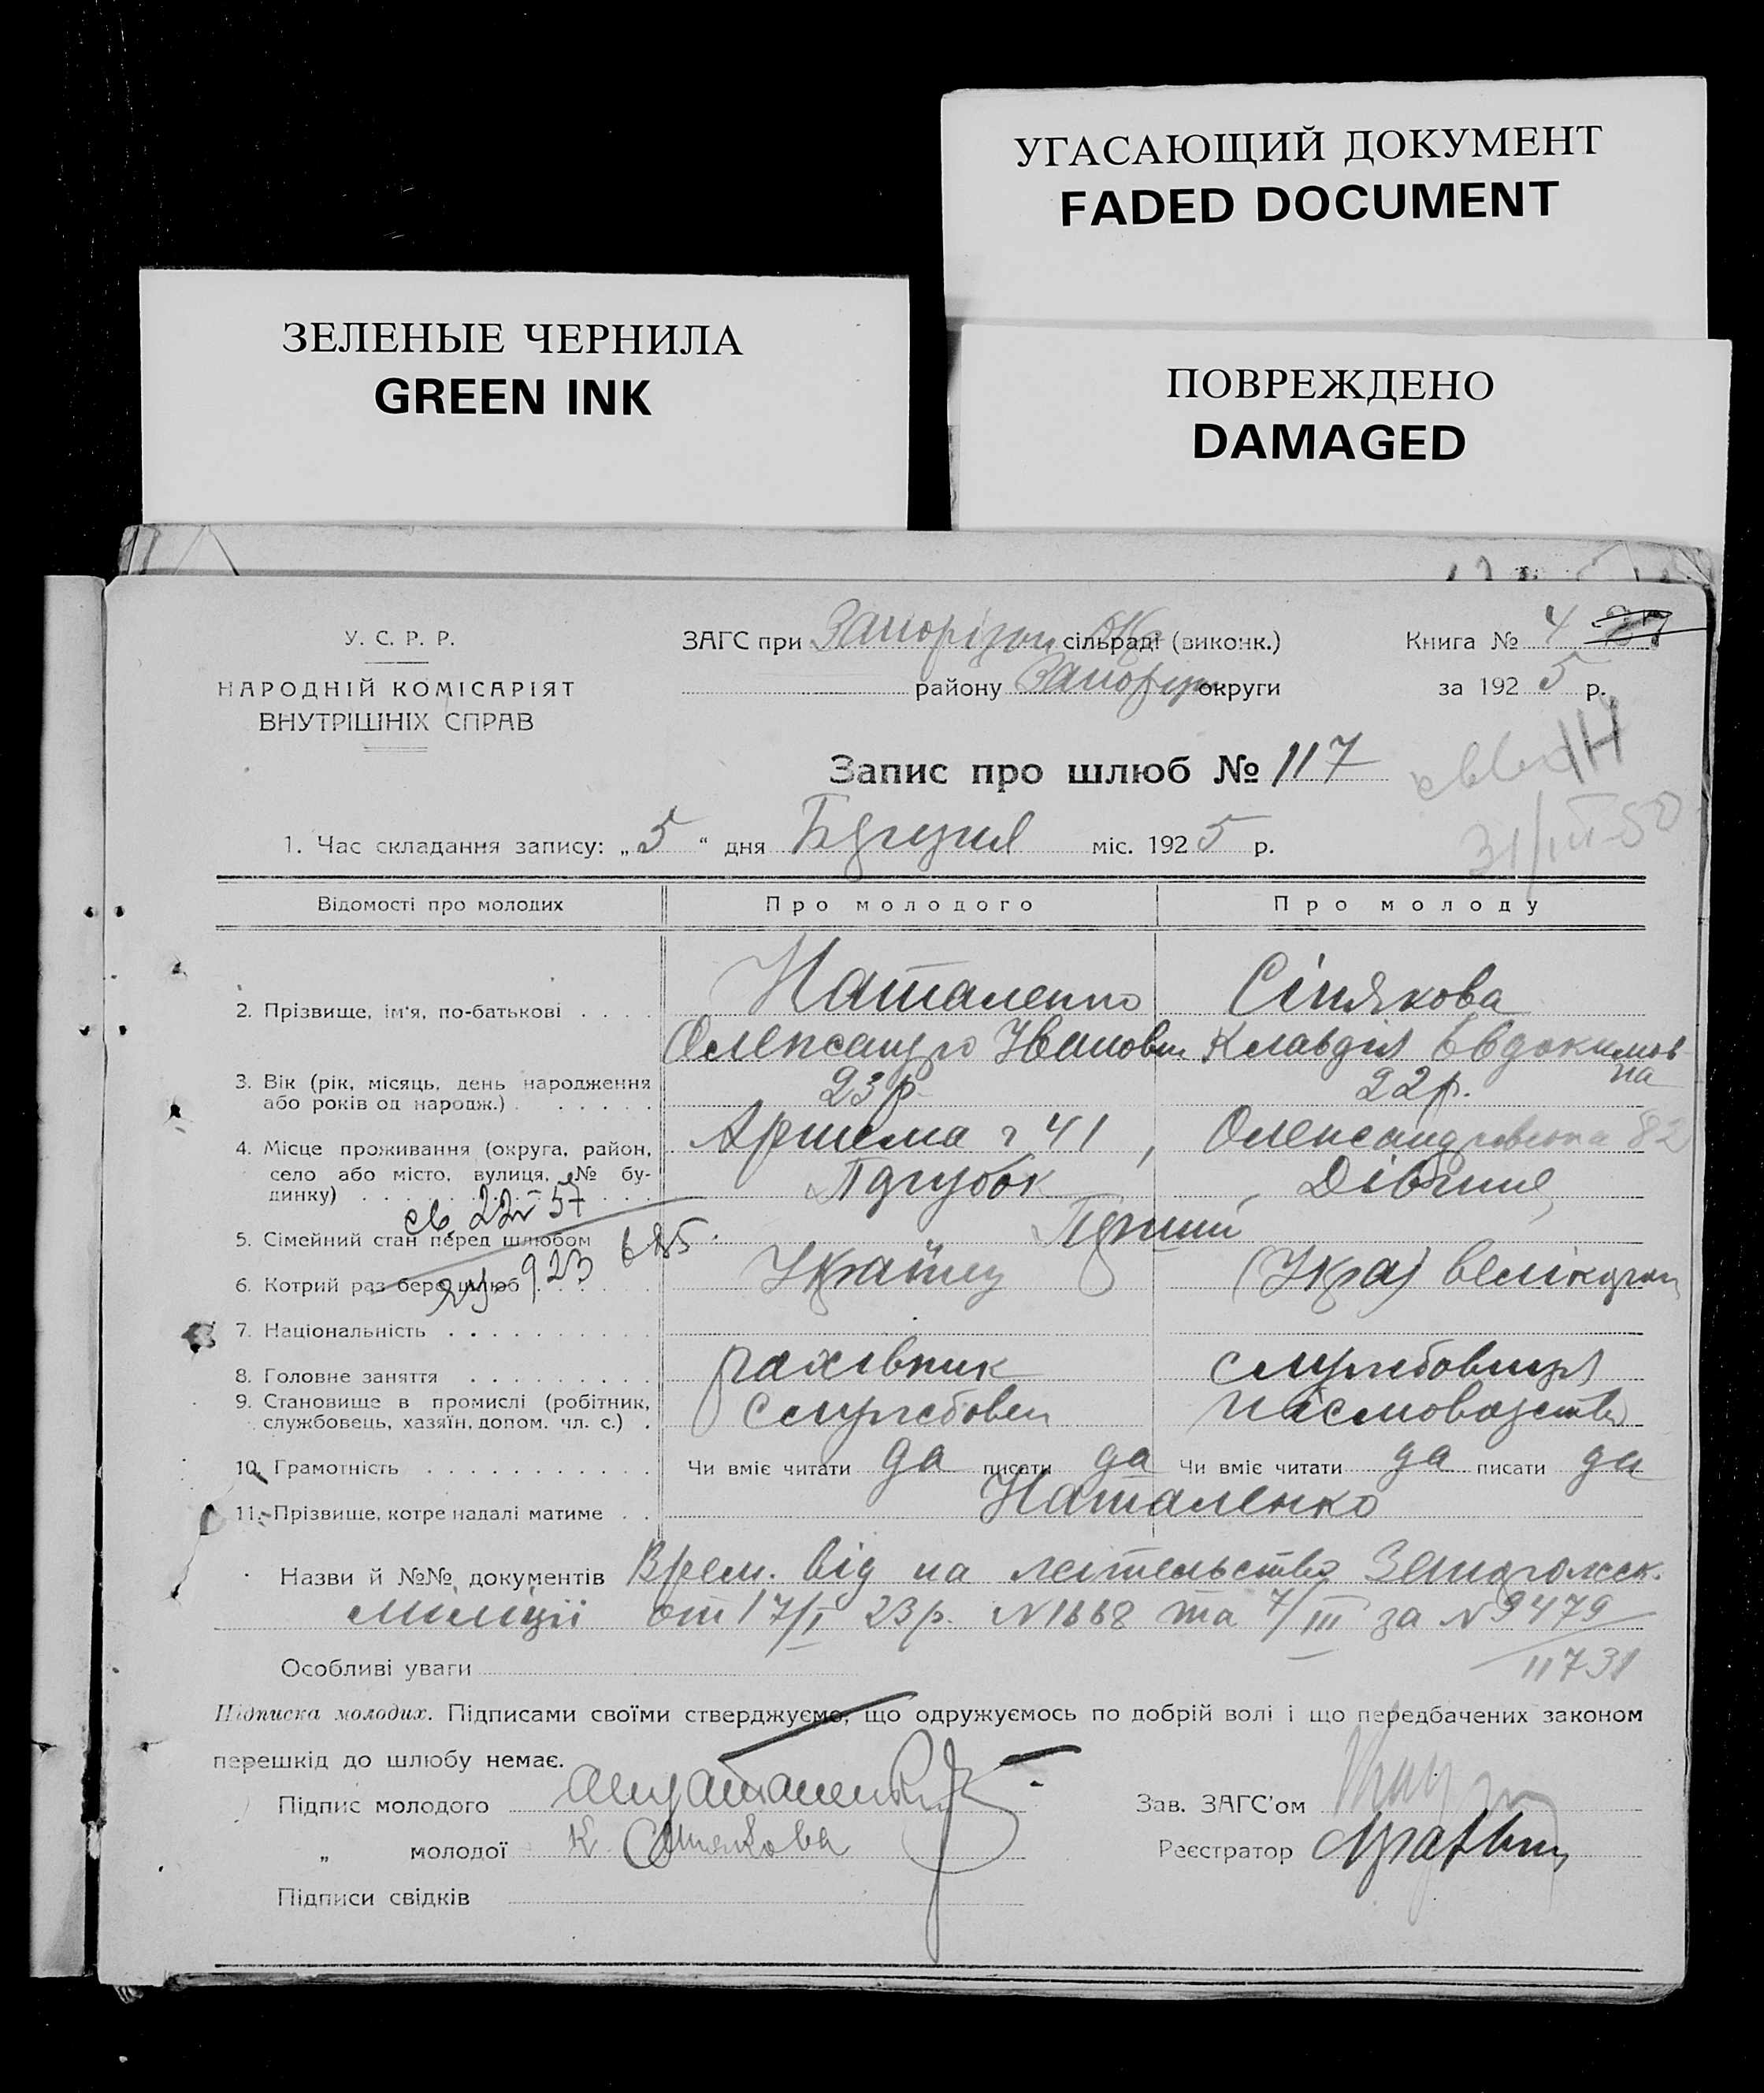 УГАСАЮЩИЙ ДОКУМЕНТ
FADED DOCUMENT
ЗЕЛЕНЫЕ ЧЕРНИЛА
GREEN INK
ПОВРЕЖДЕНО
DAMAGED
У. С. Р. Р.
НАРОДНІЙ КОМІСАРІЯТ
ВНУТРІШНІХ СПРАВ
ЗАГС при сільраді (виконк.)
району округи
Книга № 4 27
за 1925 р.
Запис про шлюб № 117
31/III-50
1. Час складання запису: „5“ дня міс. 1925 р.
Відомості про молодих Про молодого Про молоду
2. Прізвище, ім'я, по-батькові . . . . Наталенко Сінякова
Олександр Іванович Клавдія Евдокимовна
3. Вік (рік, місяць, день народження або років од народж.) . . . . . . . 23 р. 22 р.
4. Місце проживання (округа, район, село або місто, вулиця, № будинку) . . . Артема 41, Олександрівська 82
5. Сімейний стан перед шлюбом Парубок Дівчина
6. Котрий раз бере шлюб . . . . . . Перший
7. Національність . . . . . . . . . . Українец (Укра) великорос
8. Головне заняття . . . . . . . . . рахівник службовиця
9. Становище в промислі (робітник, службовець, хазяїн, допом. чл. с.) . Службовец
10. Грамотність . . . . . . . . . . . Чи вміє читати да писати да Чи вміє читати да писати да
11. Прізвище, котре надалі матиме . . Наталенко
Назви й №№ документів Врем. від на жительство
милиції от 17/I 23 р. N 1668 та 7/III за N 9479
11731
Особливі уваги
Підписка молодих. Підписами своїми стверджуємо, що одружуємось по добрій волі і що передбачених законом
перешкід до шлюбу немає.
Підпис молодого
Зав. ЗАГС'ом
„ молодої К. Сінякова
Реєстратор
Підписи свідків